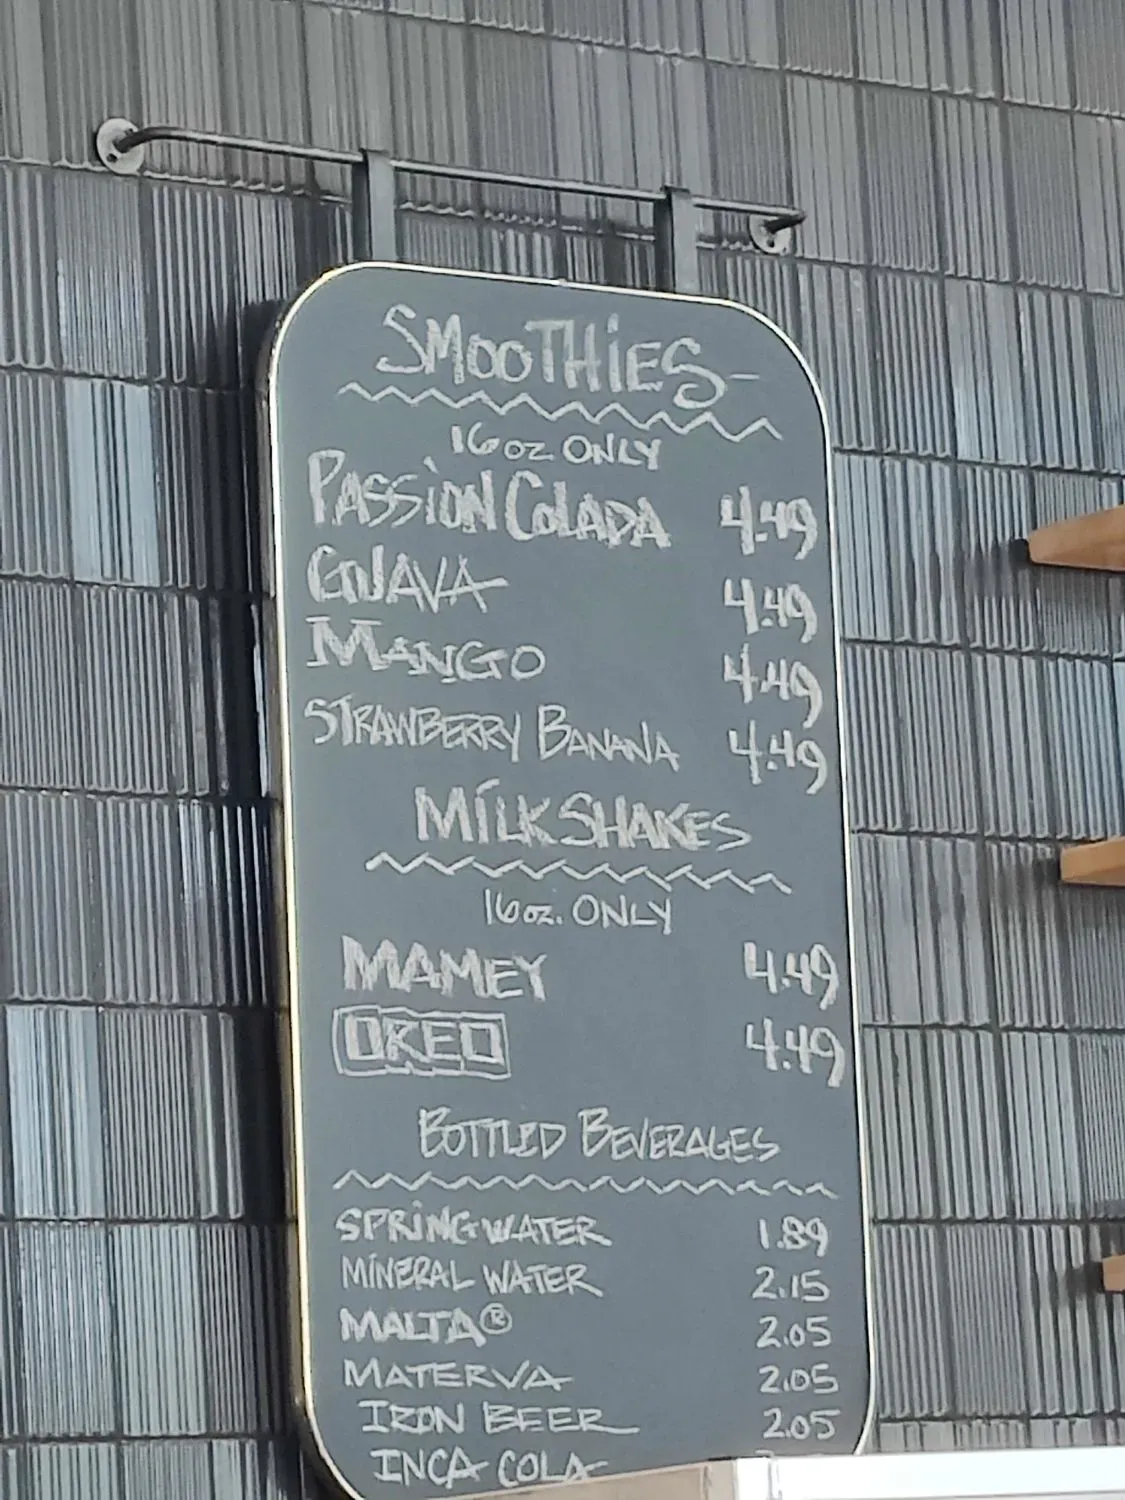 SMOOTHIES-
16oz ONLY
PASSION COLADA 4.49
GUAVA 4.49
MANGO 4.49
STRAWBERRY BANANA 4.49
MILKSHAKES
16oz. ONLY
MAMEY 4.49
OREO 4.49
BOTTLED BEVERAGES
SPRING WATER 1.89
MINERAL WATER 2.15
MALTA® 2.05
MATERVA 2.05
IRON BEER 2.05
INCA COLA